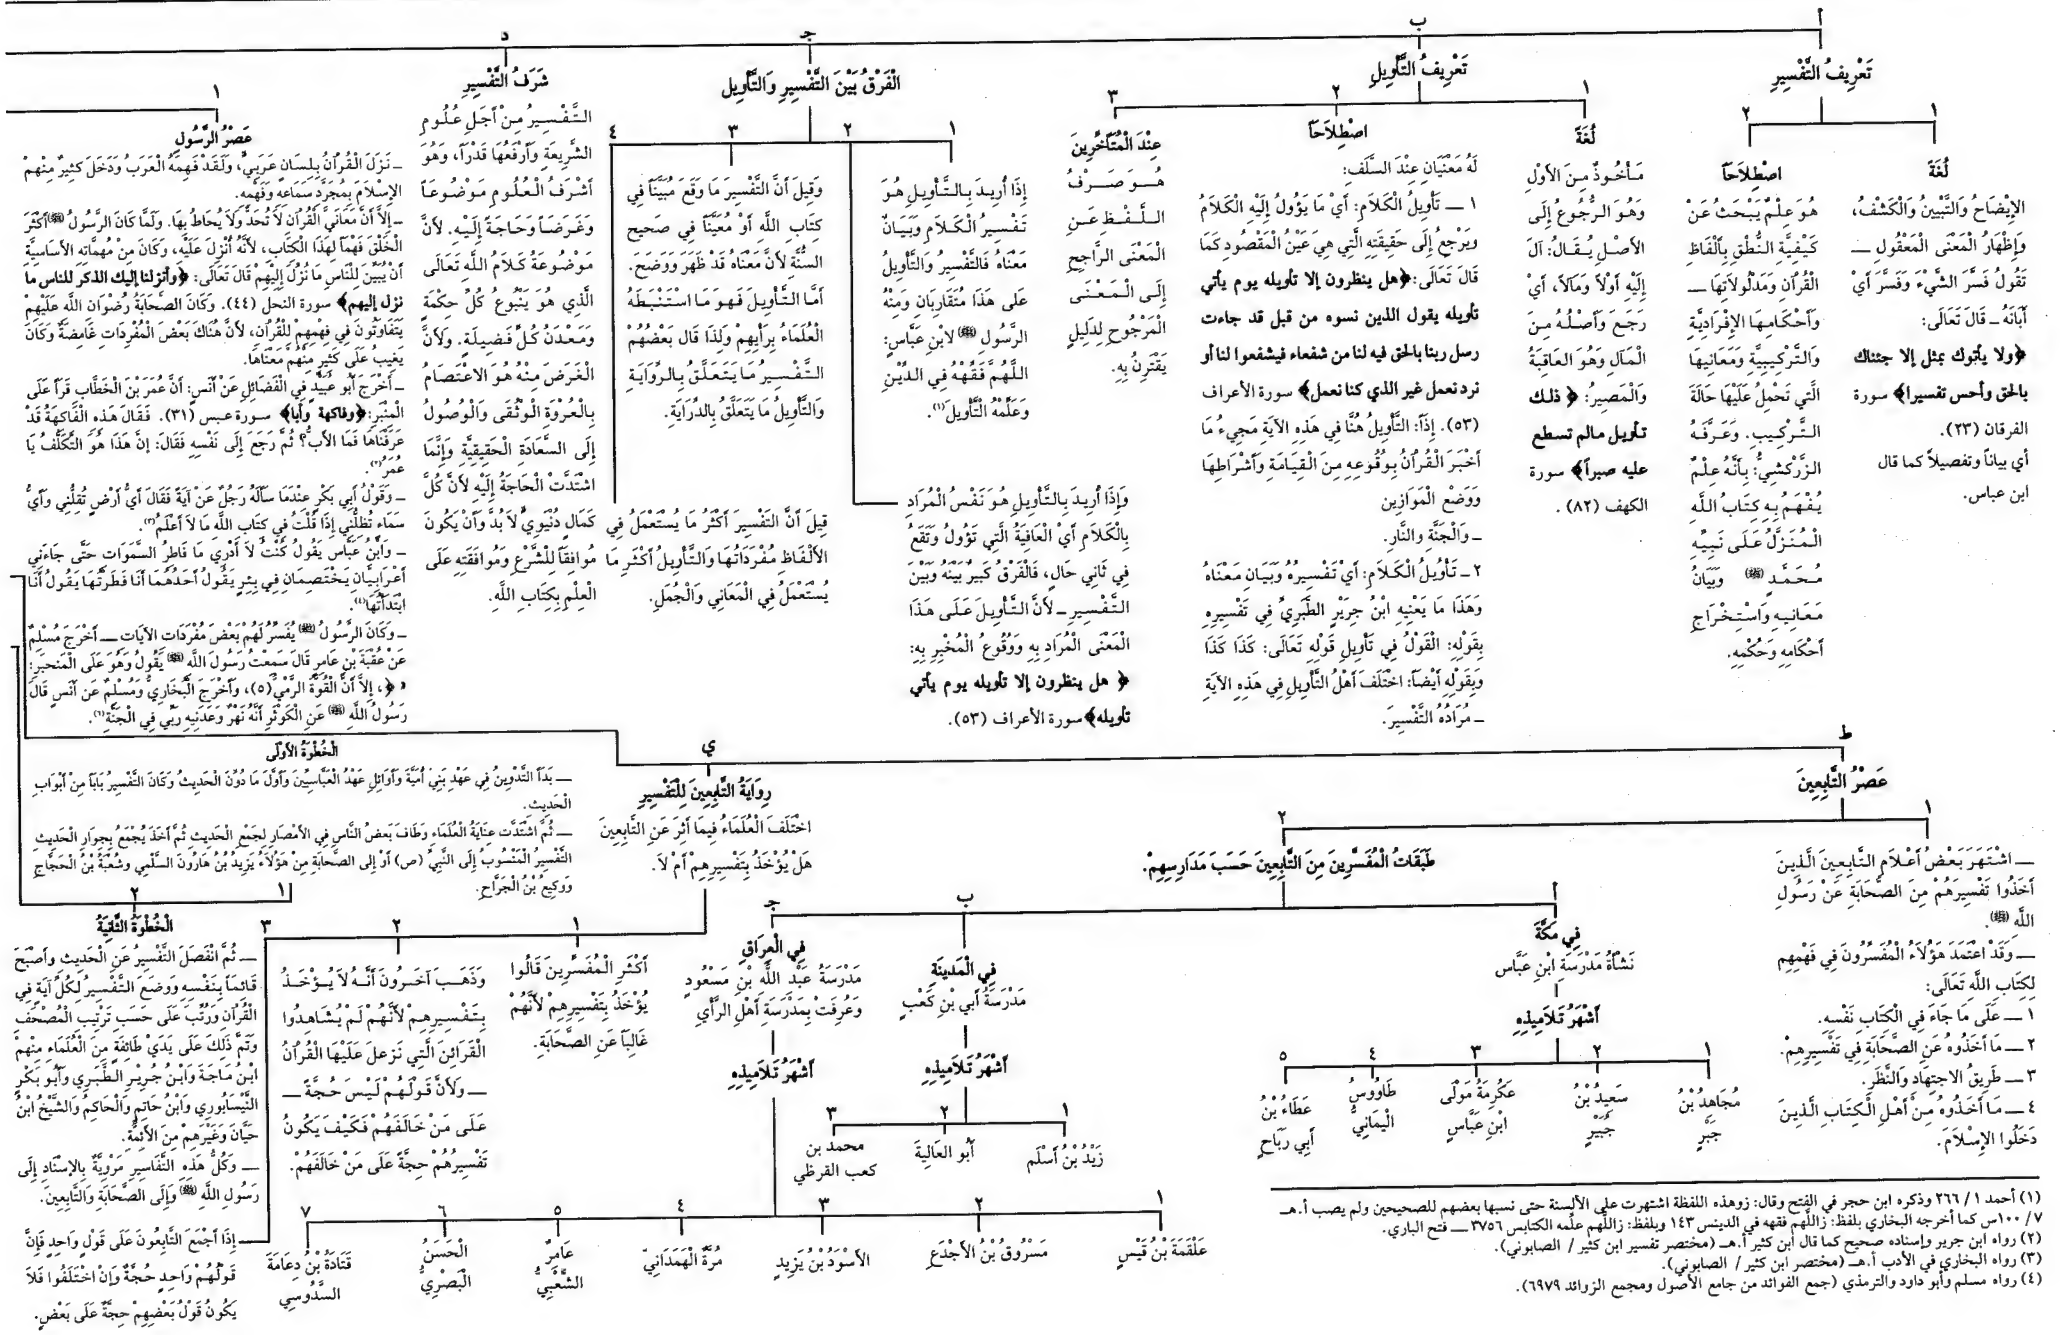 أ
تَعْرِيفُ التَّفْسِيرِ
١
لُغَةً
الإِيْضَاحُ وَالتَّبْيِينُ وَالْكَشْفُ،
وَإِظْهَارُ الْمَعْنَى الْمَعْقُول ــ
تَقُولُ فَسَّرَ الشَّيْءَ وَفَسَّرَ أَيْ
أَبَانَهُ ـ قَالَ تَعَالَى:
﴿ولا يأتوك بمثل إلا جئناك
بالحق وأحس تفسيرا﴾ سورة
الفرقان (٢٣).
أي بياناً وتفصيلاً كما قال
ابن عباس.
٢
اصْطِلاَحاً
هُوَ عِلْمٌ يَبْحَثُ عَنْ
كَيْفِيَّةِ النُّطْقِ بِأَلْفَاظِ
القُرْآنِ وَمَدْلُولاَتِهَا ــ
وَأَحْكَامِهَا الإِفْرَادِيَّةِ
وَالتَّرْكِيبِيَّةِ وَمَعَانِيهَا
الَّتِي تَحْمِلُ عَلَيْهَا حَالَةَ
التَّرْكِيبِ. وَعَرَّفَهُ
الزَّرْكَشِيُّ: بِأَنَّهُ عِلْمٌ
يُفْهَمُ بِهِ كِتَابُ اللَّهِ
الْمُنَزَّلُ عَلَى نَبِيِّهِ
مُحَمَّدٍ ﷺ وَبَيَانُ
مَعَانِيهِ وَاسْتِخْرَاجِ
أَحْكَامِهِ وَحُكْمِهِ.
ب
تَعْرِيفُ التَّأْوِيلِ
١
لُغَةً
مَأْخُوذٌ مِنَ الأَوْلِ
وَهُوَ الرُّجُوعُ إِلَى
الأَصْلِ يُقَالُ: آلَ
إِلَيْهِ أَوْلاً وَمَآلاً، أَيْ
رَجَعَ وَأَصْلُهُ مِنَ
الْمَآلِ وَهُوَ العَاقِبَةُ
وَالْمَصِيرُ: ﴿ ذلك
تأويل مالم تسطع
عليه صبراً﴾ سورة
الكهف (٨٢) .
٢
اصْطِلاَحاً
لَهُ مَعْنَيَانِ عِنْدَ السَّلَفِ:
١ ــ تَأْوِيلُ الْكَلاَمِ: أَيْ مَا يَؤُولُ إِلَيْهِ الْكَلاَمُ
وَيَرْجِعُ إِلَى حَقِيقَتِهِ الَّتِي هِيَ عَيْنُ الْمَقْصُودِ كَمَا
قَالَ تَعَالَى: ﴿هل ينظرون إلا تأويله يوم يأتي
تأويله يقول الذين نسوه من قبل قد جاءت
رسل ربنا بالحق فيه لنا من شفعاء فيشفعوا لنا أو
نرد نعمل غير الذي كنا نعمل﴾ سورة الأعراف
(٥٣). إِذَاً: التَّأْوِيلُ هُنَا فِي هَذِهِ الآيَةِ مَجِيءُ مَا
أَخْبَرَ الْقُرْآنُ بِوُقُوعِهِ مِنَ الْقِيَامَةِ وَأَشْرَاطِهَا
وَوَضْعِ الْمَوَازِينِ
ـ وَالْجَنَّةِ وَالنَّارِ.
٢ ـ تَأْوِيلُ الْكَلاَمِ: أَيْ تَفْسِيرُهُ وَبَيَانِ مَعْنَاهُ
وَهَذَا مَا يَعْنِيهِ ابْنُ جَرِيْرٍ الطَّبَرِيِّ فِي تَفْسِيرِهِ
بِقَوْلِهِ: الْقَوْلُ فِي تَأْوِيلِ قَوْلِهِ تَعَالَى: كَذَا كَذَا
وَبِقَوْلِهِ أَيْضَاً: اخْتَلَفَ أَهْلُ التَّأْوِيلِ فِي هَذِهِ الآيَةِ
ـ مُرَادُهُ التَّفْسِيرَ.
٣
عِنْدَ الْمُتَأَخِّرِينَ
هُوَ صَرْفُ
اللَّفْظِ عَنِ
الْمَعْنَى الرَّاجِحِ
إِلَى الْمَعْنَى
الْمَرْجُوحِ لِدَلِيلٍ
يَقْتَرِنُ بِهِ.
جـ
الْفَرْقُ بَيْنَ التَّفْسِيرِ وَالتَّأْوِيلِ
١
إِذَا أُرِيدَ بِالتَّأْوِيلِ هُوَ
تَفْسِيرُ الْكَلاَمِ وَبَيَانُ
مَعْنَاهُ فَالتَّفْسِيرُ وَالتَّأْوِيلُ
عَلَى هَذَا مُتَقَارِبَانِ وَمِنْهُ
الرَّسُولِ ﷺ لاِبْنِ عَبَّاسٍ:
اللَّهُمَّ فَقِّهْهُ فِي الدِّيْنِ
وَعَلِّمْهُ التَّأْوِيلَ(١).
٢
وَإِذَا أُرِيدَ بِالتَّأْوِيلِ هُوَ نَفْسُ الْمُرَادِ
بِالْكَلاَمِ أَيْ العَاقِبَةُ الَّتِي تَؤُولُ وَتَقَعُ
فِي ثَانِي حَالٍ، فَالْفَرْقُ كَبِيرٌ بَيْنَهُ وَبَيْنَ
التَّفْسِيرِ ــ لأَنَّ التَّأْوِيلَ عَلَى هَذَا
الْمَعْنَى الْمُرَادِ بِهِ وَوُقُوعُ الْمُخْبِرِ بِهِ:
﴿ هل ينظرون إلا تأويله يوم يأتي
تأويله﴾ سورة الأعراف (٥٣).
٣
وَقِيلَ أَنَّ التَّفْسِيرَ مَا وَقَعَ مُبَيَّنَاً فِي
كِتَابِ اللَّهِ أَوْ مُعَيَّنَاً فِي صَحِيحِ
السُّنَّةِ لأَنَّ مَعْنَاهُ قَدْ ظَهَرَ وَوَضَحَ.
أَمَّا التَّأْوِيلَ فَهُوَ مَا اسْتَنْبَطَهُ
الْعُلَمَاءُ بِرَأْيِهِمْ وَلِذَا قَالَ بَعْضُهُمْ
التَّفْسِيرُ مَا يَتَعَلَّقُ بِالرِّوَايَةِ
وَالتَّأْوِيلُ مَا يَتَعَلَّقُ بِالدِّرَايَةِ.
٤
قِيلَ أَنَّ التَفْسِيرَ أَكْثَرُ مَا يُسْتَعْمَلُ فِي
الأَلْفَاظِ مُفْرَدَاتُهَا وَالتَّأْوِيلُ أَكْثَرِ مَا
يُسْتَعْمَلُ فِي الْمَعَانِي وَالْجُمَلِ.
د
شَرَفُ التَّفْسِيرِ
التَّفْسِيرُ مِنْ أَجَلِّ عُلُومِ
الشَّرِيعَةِ وَأَرْفَعُهَا قَدْرَاً، وَهُوَ
أَشْرَفُ الْعُلُومِ مَوْضُوعَاً
وَغَرَضَاً وَحَاجَةً إِلَيْهِ. لأَنَّ
مَوْضُوعَهُ كَلاَمُ اللَّهِ تَعَالَى
الَّذِي هُوَ يَنْبُوعُ كُلِّ حِكْمَةٍ
وَمَعْدَنُ كُلِّ فَضِيلَةٍ. وَلأَنَّ
الْغَرَضَ مِنْهُ هُوَ الاعْتِصَامُ
بِالْعُرْوَةِ الْوُثْقَى وَالْوُصُولُ
إِلَى السَّعَادَةِ الْحَقِيقِيَّةِ وَإِنَّمَا
اشْتَدَّتْ الْحَاجَةُ إِلَيْهِ لأَنَّ كُلَّ
كَمَالٍ دُنْيَوِيٍّ لاَ بُدَّ وَأَنْ يَكُونَ
مُوافِقَاً لِلشَّرْعِ وَمُوافَقَتِهِ عَلَى
الْعِلْمِ بِكِتَابِ اللَّهِ.
١
عَصْرُ الرَّسُولِ
ـ نَزَلَ الْقُرْآنُ بِلِسَانٍ عَرَبِيٍّ، وَلَقَدْ فَهِمَهُ الْعَرَبُ وَدَخَلَ كَثِيرٌ مِنْهُمْ
الإِسْلاَمَ بِمُجَرَّدِ سَمَاعِهِ وَفَهْمِهِ.
ـ إِلاَّ أَنَّ مَعَانِيَ الْقُرْآنِ لاَ تُحَدُّ وَلاَ يُحَاطُ بِهَا. وَلَمَّا كَانَ الرَّسُولُ ﷺ أَكْثَرَ
الْخَلْقِ فَهْمَاً لِهَذَا الْكِتَابِ، لأَنَّهُ أُنْزِلَ عَلَيْهِ، وَكَانَ مِنْ مُهِمَّاتِهِ الأَسَاسِيَّةِ
أَنْ يُبَيِّنَ لِلنَّاسِ مَا نُزِّلَ إِلَيْهِمْ قَالَ تَعَالَى: ﴿وأنزلنا إليك الذكر للناس ما
نزل إليهم﴾ سورة النحل (٤٤). وَكَانَ الصَّحَابَةُ رِضْوَانِ اللَّهِ عَلَيْهِمْ
يَتَفَاوَتُونَ فِي فَهْمِهِمْ لِلْقُرْآنِ، لأَنَّ هُنَاكَ بَعْضَ الْمُفْرَدَاتِ غَامِضَةٌ وَكَانَ
يَغِيبُ عَلَى كَثِيرٍ مِنْهُمْ مَعْنَاهَا.
ـ أَخْرَجَ أَبُو عُبَيْدٍ فِي الْفَضَائِلِ عَنْ أَنَسٍ: أَنَّ عُمَرَ بْنَ الْخَطَّابِ قَرَأَ عَلَى
الْمِنْبَرِ: ﴿وفاكهة وأبا﴾ سورة عبس (٣١). فَقَالَ هَذِهِ الْفَاكِهَةُ قَدْ
عَرَفْنَاهَا فَمَا الأَبُّ؟ ثُمَّ رَجَعَ إِلَى نَفْسِهِ فَقَالَ: إِنَّ هَذَا هُوَ التَّكَلُّفُ يَا
عُمَرُ(٢).
ـ وَقَوْلُ أَبِي بَكْرٍ عِنْدَمَا سَأَلَهُ رَجُلٌ عَنْ آيَةٍ فَقَالَ أَيُّ أَرْضٍ تُقِلُّنِي وَأَيُّ
سَمَاءٍ تُظِلُّنِي إِذَا قُلْتُ فِي كِتَابِ اللَّهِ مَا لاَ أَعْلَمُ(٣).
ـ وَابْنُ عَبَّاسٍ يَقُولُ كُنْتُ لاَ أَدْرِي مَا فَاطِرُ السَّمَوَاتِ حَتَّى جَاءَنِي
أَعْرَابِيَّانِ يَخْتَصِمَانِ فِي بِئْرٍ يَقُولُ أَحَدُهُمَا أَنَا فَطَرْتُهَا يَقُولُ أَنَا
ابْتَدَأْتُهَا(٤).
ـ وَكَانَ الرَّسُولُ ﷺ يُفَسِّرُ لَهُمْ بَعْضَ مُفْرَدَاتِ الآيَاتِ ــ أَخْرَجَ مُسْلِمٌ
عَنْ عُقْبَةَ بْنِ عَامِرٍ قَالَ سَمِعْتُ رَسُولَ اللَّهِ ﷺ يَقُولُ وَهُوَ عَلَى الْمَنْحبَرِ:
﴿ ﴾، إِلاَّ أَنَّ الْقُوَّةَ الرَّمْيُ (٥)، وَأَخْرَجَ الْبُخَارِيُّ وَمُسْلِمٌ عَنْ أَنَسٍ قَالَ
رَسُولُ اللَّهِ ﷺ عَنِ الْكَوْثَرِ أَنَّهُ نَهْرٌ وَعَدَنِيهِ رَبِّي فِي الْجَنَّةِ(٦).
ط
عَصْرُ التَّابِعِينَ
١
ــ اشْتَهَرَ بَعْضُ أَعْلاَمِ التَّابِعِينَ الَّذِينَ
أَخَذُوا تَفْسِيرَهُمْ مِنَ الصَّحَابَةِ عَنْ رَسُولِ
اللَّهِ ﷺ.
ــ وَقَدْ اعْتَمَدَ هَؤُلاَءُ الْمُفَسِّرُونَ فِي فَهْمِهِمِ
لِكِتَابِ اللَّهِ تَعَالَى:
١ ــ عَلَى مَا جَاءَ فِي الْكِتَابِ نَفْسِهِ.
٢ ــ مَا أَخَذُوهُ عَنِ الصَّحَابَةِ فِي تَفْسِيرِهِمْ.
٣ ــ طَرِيقُ الاجْتِهَادِ وَالنَّظَرِ.
٤ ــ مَا أَخَذُوهُ مِنْ أَهْلِ الْكِتَابِ الَّذِينَ
دَخَلُوا الإِسْلاَمَ.
٢
طَبَقَاتُ الْمُفَسِّرِينَ مِنَ التَّابِعِينَ حَسَبَ مَدَارِسِهِمْ.
أ
فِي مَكَّةَ
نَشْأَةُ مَدْرَسَةِ ابْنِ عَبَّاسٍ
أَشْهَرُ تَلاَمِيذِهِ
١
مُجَاهِدُ بْنُ
جَبْرٍ
٢
سَعِيدُ بْنُ
جُبَيْرٍ
٣
عَكْرِمَةُ مَوْلَى
ابْنِ عَبَّاسٍ
٤
طَاوُوسُ
الْيَمَانِيُّ
٥
عَطَاءُ بْنُ
أَبِي رَبَاحٍ
ب
فِي الْمَدِينَةِ
مَدْرَسَةُ أُبَي بْنِ كَعْبٍ
أَشْهَرُ تَلاَمِيذِهِ
١
زَيْدُ بْنُ أَسْلَم
٢
أَبُو العَالِيَةَ
٣
محمد بن
كعب القرظي
جـ
فِي الْعِرَاقِ
مَدْرَسَةُ عَبْدِ اللَّهِ بْنِ مَسْعُودٍ
وَعُرِفَتْ بِمَدْرَسَةِ أَهْلِ الرَّأْيِ
أَشْهَرُ تَلاَمِيذِهِ
١
عَلْقَمَةَ بْنُ قَيْسٍ
٢
مَسْرُوقُ بْنُ الأَجْدَعِ
٣
الأَسْوَدُ بْنُ يَزِيدٍ
٤
مُرَّةُ الْهَمَدَانِيّ
٥
عَامِرُ
الشَّعْبِيُّ
٦
الْحَسَنُ
الْبَصْرِيُّ
٧
قَتَادَةُ بْنُ دِعَامَةَ
السَّدُوسِي
ي
رِوَايَةُ التَّابِعِينَ لِلتَّفْسِيرِ
اخْتَلَفَ الْعُلَمَاءُ فِيمَا أُثِرَ عَنِ التَّابِعِينَ
هَلْ يُؤْخَذُ بِتَفْسِيرِهِمْ أَمْ لاَ.
١
أَكْثَرِ الْمُفَسِّرِينَ قَالُوا
يُؤْخَذُ بِتَفْسِيرِهِمْ لأَنَّهُمْ
غَالِبَاً عَنِ الصَّحَابَةِ.
٢
وَذَهَبَ آخَرُونَ أَنَّهُ لاَ يُؤْخَذُ
بِتَفْسِيرِهِمْ لأَنَّهُمْ لَمْ يُشَاهِدُوا
الْقَرَائِنَ الَّتِي نَزعلَ عَلَيْهَا الْقُرْآنُ
ــ وَلأَنَّ قَوْلَهُمْ لَيْسَ حُجَّةً ــ
عَلَى مَنْ خَالَفَهُمْ فَكَيْفَ يَكُونُ
تَفْسِيرُهُمْ حجَّةً عَلَى مَنْ خَالَفَهُمْ.
٣
ــ إِذَا أَجْمَعَ التَّابِعُونَ عَلَى قَوْلٍ وَاحِدٍ فَإِنَّ
قَوْلَهُمْ وَاحِدٍ حُجَّةٌ وَإِنْ اخْتَلَفُوا فَلاَ
يَكُونُ قَوْلُ بَعْضِهِمْ حِجَّةً عَلَى بَعْضٍ.
١
الْخُطْوَةُ الأُوْلَى
ــ بَدَأَ التَّدْوِينُ فِي عَهْدِ بَنِي أُمَيَّةَ وَأَوَائِلِ عَهْدُ الْعَبَّاسِيِّينَ وَأَوَّلَ مَا دُوِّنَ الْحَدِيثُ وَكَانَ التَّفْسِيرُ بَابَاً مِنْ أَبْوَابِ
الْحَدِيثِ.
ــ ثُمَّ اشْتَدَّت عِنَايَةُ الْعُلَمَاءِ وَطَافَ بَعضُ النَّاسِ فِي الأَمْصَارِ لِجَمْعِ الْحَدِيثِ ثُمَّ أَخَذَ يُجْمَعُ بِجِوَارِ الْحَدِيثِ
التَّفْسِيرُ الْمَنْسُوبُ إِلَى النَّبِيِّ (ص) أَوْ إِلَى الصَّحَابَةِ مِنْ هَؤُلاَءُ يَزِيدُ بْنُ هَارُونَ السَّلْمِي وشُعْبَةُ بْنُ الْحَجَّاجِ
وَوَكِيعُ بْنُ الْجَرَّاحِ.
٢
الْخُطْوَةُ الثَّانِيَةُ
ــ ثُمَّ انْفَصَلَ التَّفْسِيرُ عَنِ الْحَدِيثِ وَأَصْبَحَ
قَائِمَاً بِنَفْسِهِ وَوَضَعَ التَّفْسِيرُ لِكُلِّ آيَةٍ فِي
الْقُرْآنِ وَرُتِّبَ عَلَى حَسَبِ تَرْتِيبِ الْمُصْحَفِ
وَتَمَّ ذَلِكَ عَلَى يَدَيْ طَائِفَةٍ مِنَ الْعُلَمَاءِ مِنْهُمْ
ابْنُ مَاجَةَ وَابْنُ جُرِيْرِ الطَّبَرِي وَأَبُو بَكْرِ
النَّيْسَابُورِي وَابْنُ حَاتِمٍ وَالْحَاكِمُ وَالشَّيْخُ ابْنُ
حَيَّانَ وَغَيْرَهِمْ مِنَ الأَئِمَّةِ.
ــ وَكُلُّ هَذِهِ التَّفَاسِيرِ مَرْوِيَّةٌ بِالإِسْنَادِ إِلَى
رَسُولِ اللَّهِ ﷺ وَإِلَى الصَّحَابَةِ وَالتَّابِعِينَ.
(١) أحمد ١ / ٢٦٦ وذكره ابن حجر في الفتح وقال: زوهذه اللفظة اشتهرت على الألسنة حتى نسبها بعضهم للصحيحين ولم يصب أ.هـ
٧ / ١٠٠س كما أخرجه البخاري بلفظ: زاللَّهم فقهه في الدينس ١٤٣ وبلفظ: زاللَّهم علِّمه الكتابس ٣٧٥٦ ــ فتح الباري.
(٢) رواه ابن جرير وإسناده صحيح كما قال ابن كثير أ.هـ (مختصر تفسير ابن كثير / الصابوني).
(٣) رواه البخاري في الأدب أ.هـ (مختصر ابن كثير / الصابوني).
(٤) رواه مسلم وأبو داود والترمذي (جمع الفوائد من جامع الأصول ومجمع الزوائد ٦٩٧٩).